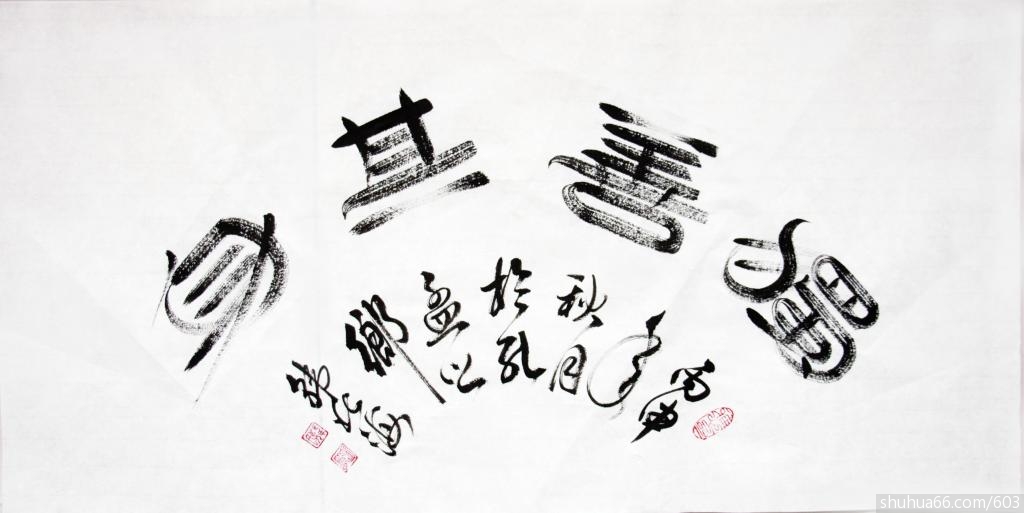 獨善其身
申
年
秋月
於孔
孟之
鄉
海
shuhua66.com/603